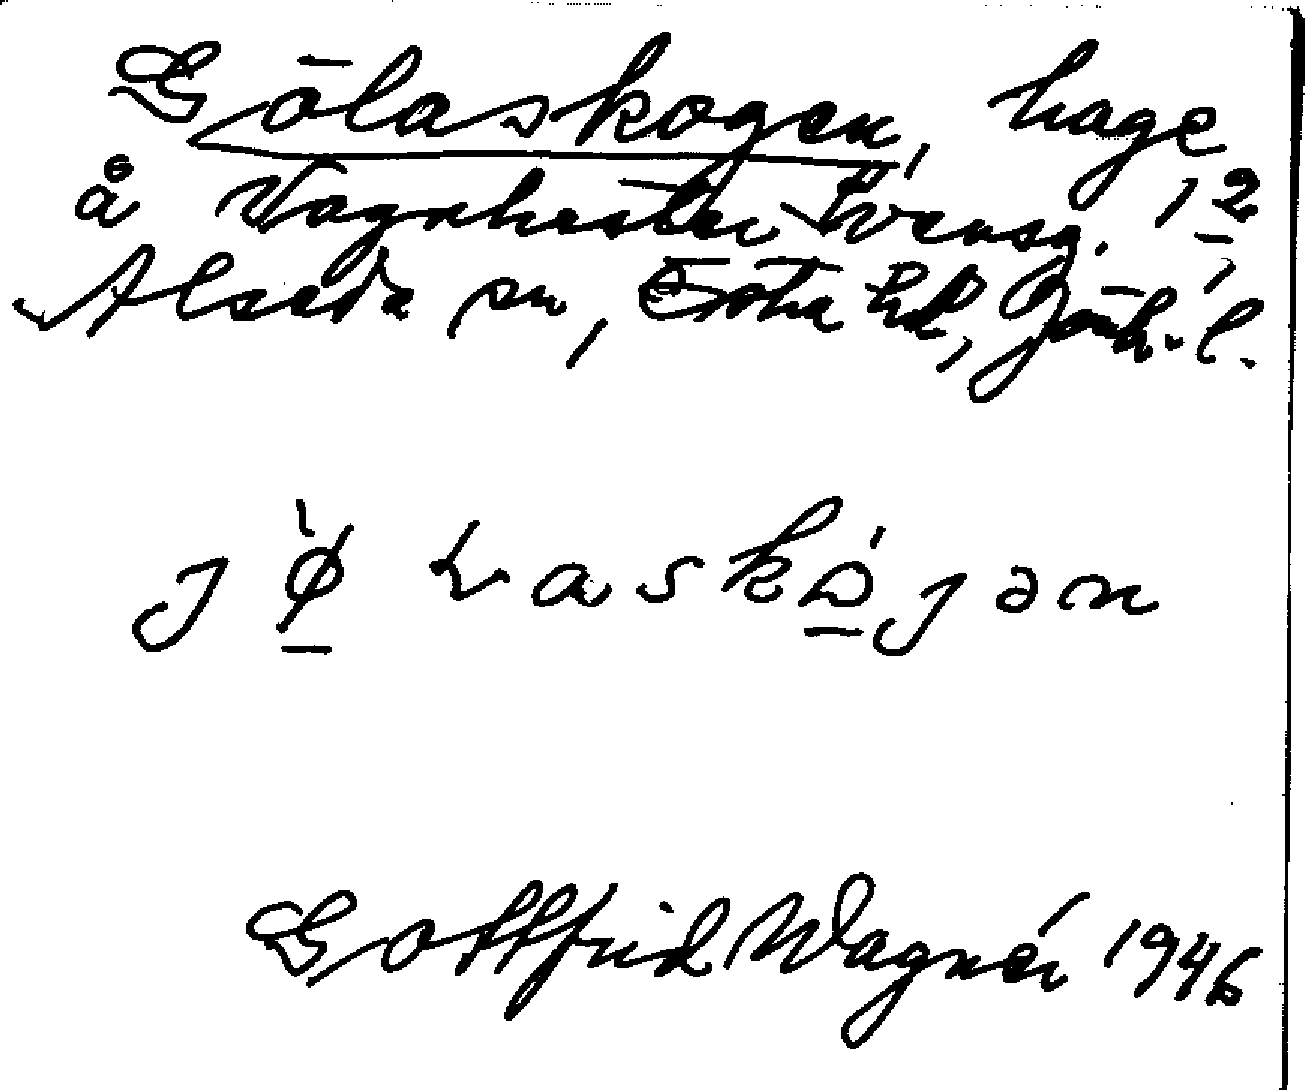 Gölaskogen, hage
å Vagnhester Svensg. 12,
Alseda sn, Östra hd, Jönk. l.
Gottfrid Wagnér 1946